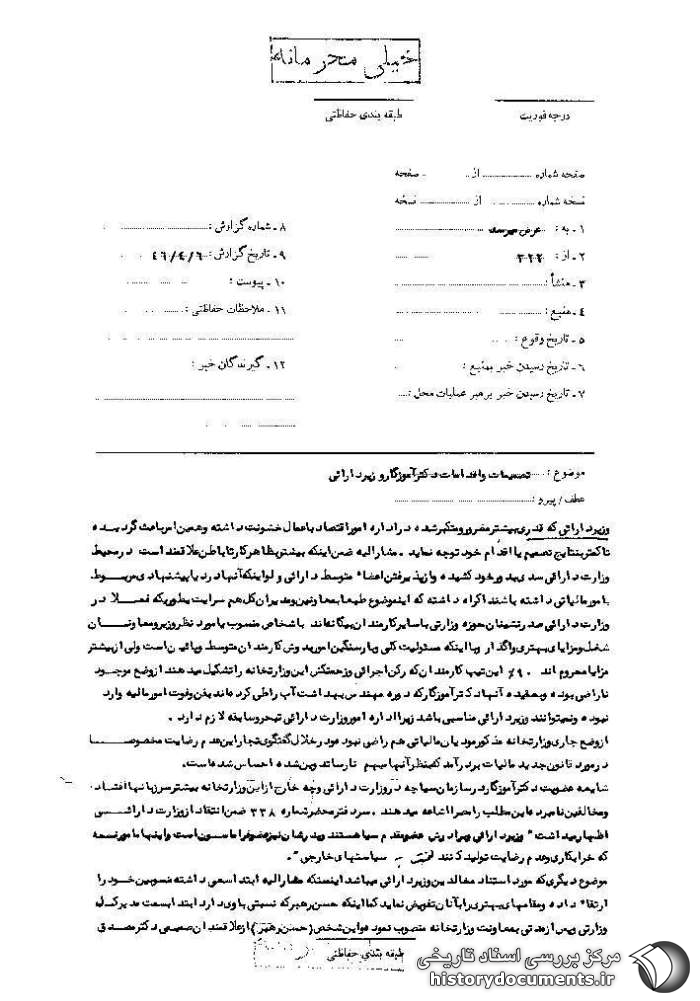 خیلی محرمانه
درجه فوریت
طبقه بندی حفاظتی
صفحه شماره از صفحه
نسخه شماره از نسخه
۱ - به : عرض میرسد
۲ - از : ۳۲۲
۳ - منشأ :
۴ - منبع :
۵ - تاریخ وقوع :
۶ - تاریخ رسیدن خبر بمنبع :
۷ - تاریخ رسیدن خبر برهبر عملیات محل :
۸ - شماره گزارش :
۹ - تاریخ گزارش : ۴۶/۴/۶
۱۰ - پیوست :
۱۱ - ملاحظات حفاظتی :
۱۲ - گیرندگان خبر :
موضوع : تصمیمات و اقدامات دکتر آموزگار وزیر دارائی
عطف / پیرو :
وزیر دارائی که قدری بیشتر مغرور و متکبر شده در اداره امور اقتصاد باعمال خشونت داشته و همین امر باعث گردیده
تا کمتر بنتایج تصمیم یا اقدام خود توجه نماید . مشارالیه ضمن اینکه بیشتر بظاهر کار تا باطن علاقمند است در محیط
وزارت دارائی سدی بدور خود کشیده و از پذیرفتن اعضاء متوسط دارائی و لو اینکه آنها درد یا پیشنهادی مربوط
بامور مالیاتی داشته باشند اکراه داشته که این موضوع طبعا بمعاونین و مدیران کل هم سرایت بطوریکه فعلا در
وزارت دارائی صدرنشینان حوزه وزارتی با سایر کارمندان بیگانه‌اند باشخاص منصوب یا مورد نظر وزیر و معاونان
شغل و مزایای بهتری واگذار و با اینکه مسئولیت کلی و بار سنگین امور بدوش کارمندان متوسط و پائین است ولی از بیشتر
مزایا محروم اند ۹۰٪ این تیپ کارمندان که رکن اجرائی و زحمتکش این وزارتخانه را تشکیل میدهند از وضع موجود
ناراضی بوده و بعقیده آنها دکتر آموزگار که دوره مهندسی بهداشت آب را طی کرده اند بفن و فوت امور مالیه وارد
نبوده و نمیتوانند وزیر دارائی مناسبی باشد زیرا اداره امور وزارت دارائی تبحر و سابقه لازم دارد .
از وضع جاری وزارتخانه مذکور مودیان مالیاتی هم راضی نبوده و در خلال گفتگوی تجار این عدم رضایت مخصوصا
در مورد قانون جدید مالیات بر درآمد که بنظر آنها مبهم نارسا و بدوین شده احساس شده است.
شایعه عضویت دکتر آموزگار در سازمان سیا چه در وزارت دارائی و چه خارج از این وزارتخانه بیشتر سر زبانها افتاده
و مخالفین نامبرده این مطلب را مصرا اشاعه میدهند . سردفتر محضر شماره ۳۳۸ ضمن انتقاد از وزارت دارائی
اظهار میداشت " وزیر دارائی و برادرش عضو مقدم سیا هستند و پدرشان نیز عضو فراماسون است و اینها مامورند
که خرابکاری و عدم رضایت تولید کنند سیاستهای خارجی " .
موضوع دیگری که مورد استناد مخالفین وزیر دارائی میباشد اینستکه مشارالیه ابتدا سعی داشته منسوبین خود را
ارتقاء داده و مقامهای بهتری را بآنان تفویض نماید کما اینکه حسن رهبر که نسبتی با وی دارد ابتدا بسمت مدیرکلی
وزارتی و پس از مدتی بمعاونت وزارتخانه منصوب نموده و این شخص (حسن رهبر) از علاقمندان صمیمی دکتر مصدق
طبقه بندی حفاظتی
مرکز بررسی اسناد تاریخی
historydocuments.ir